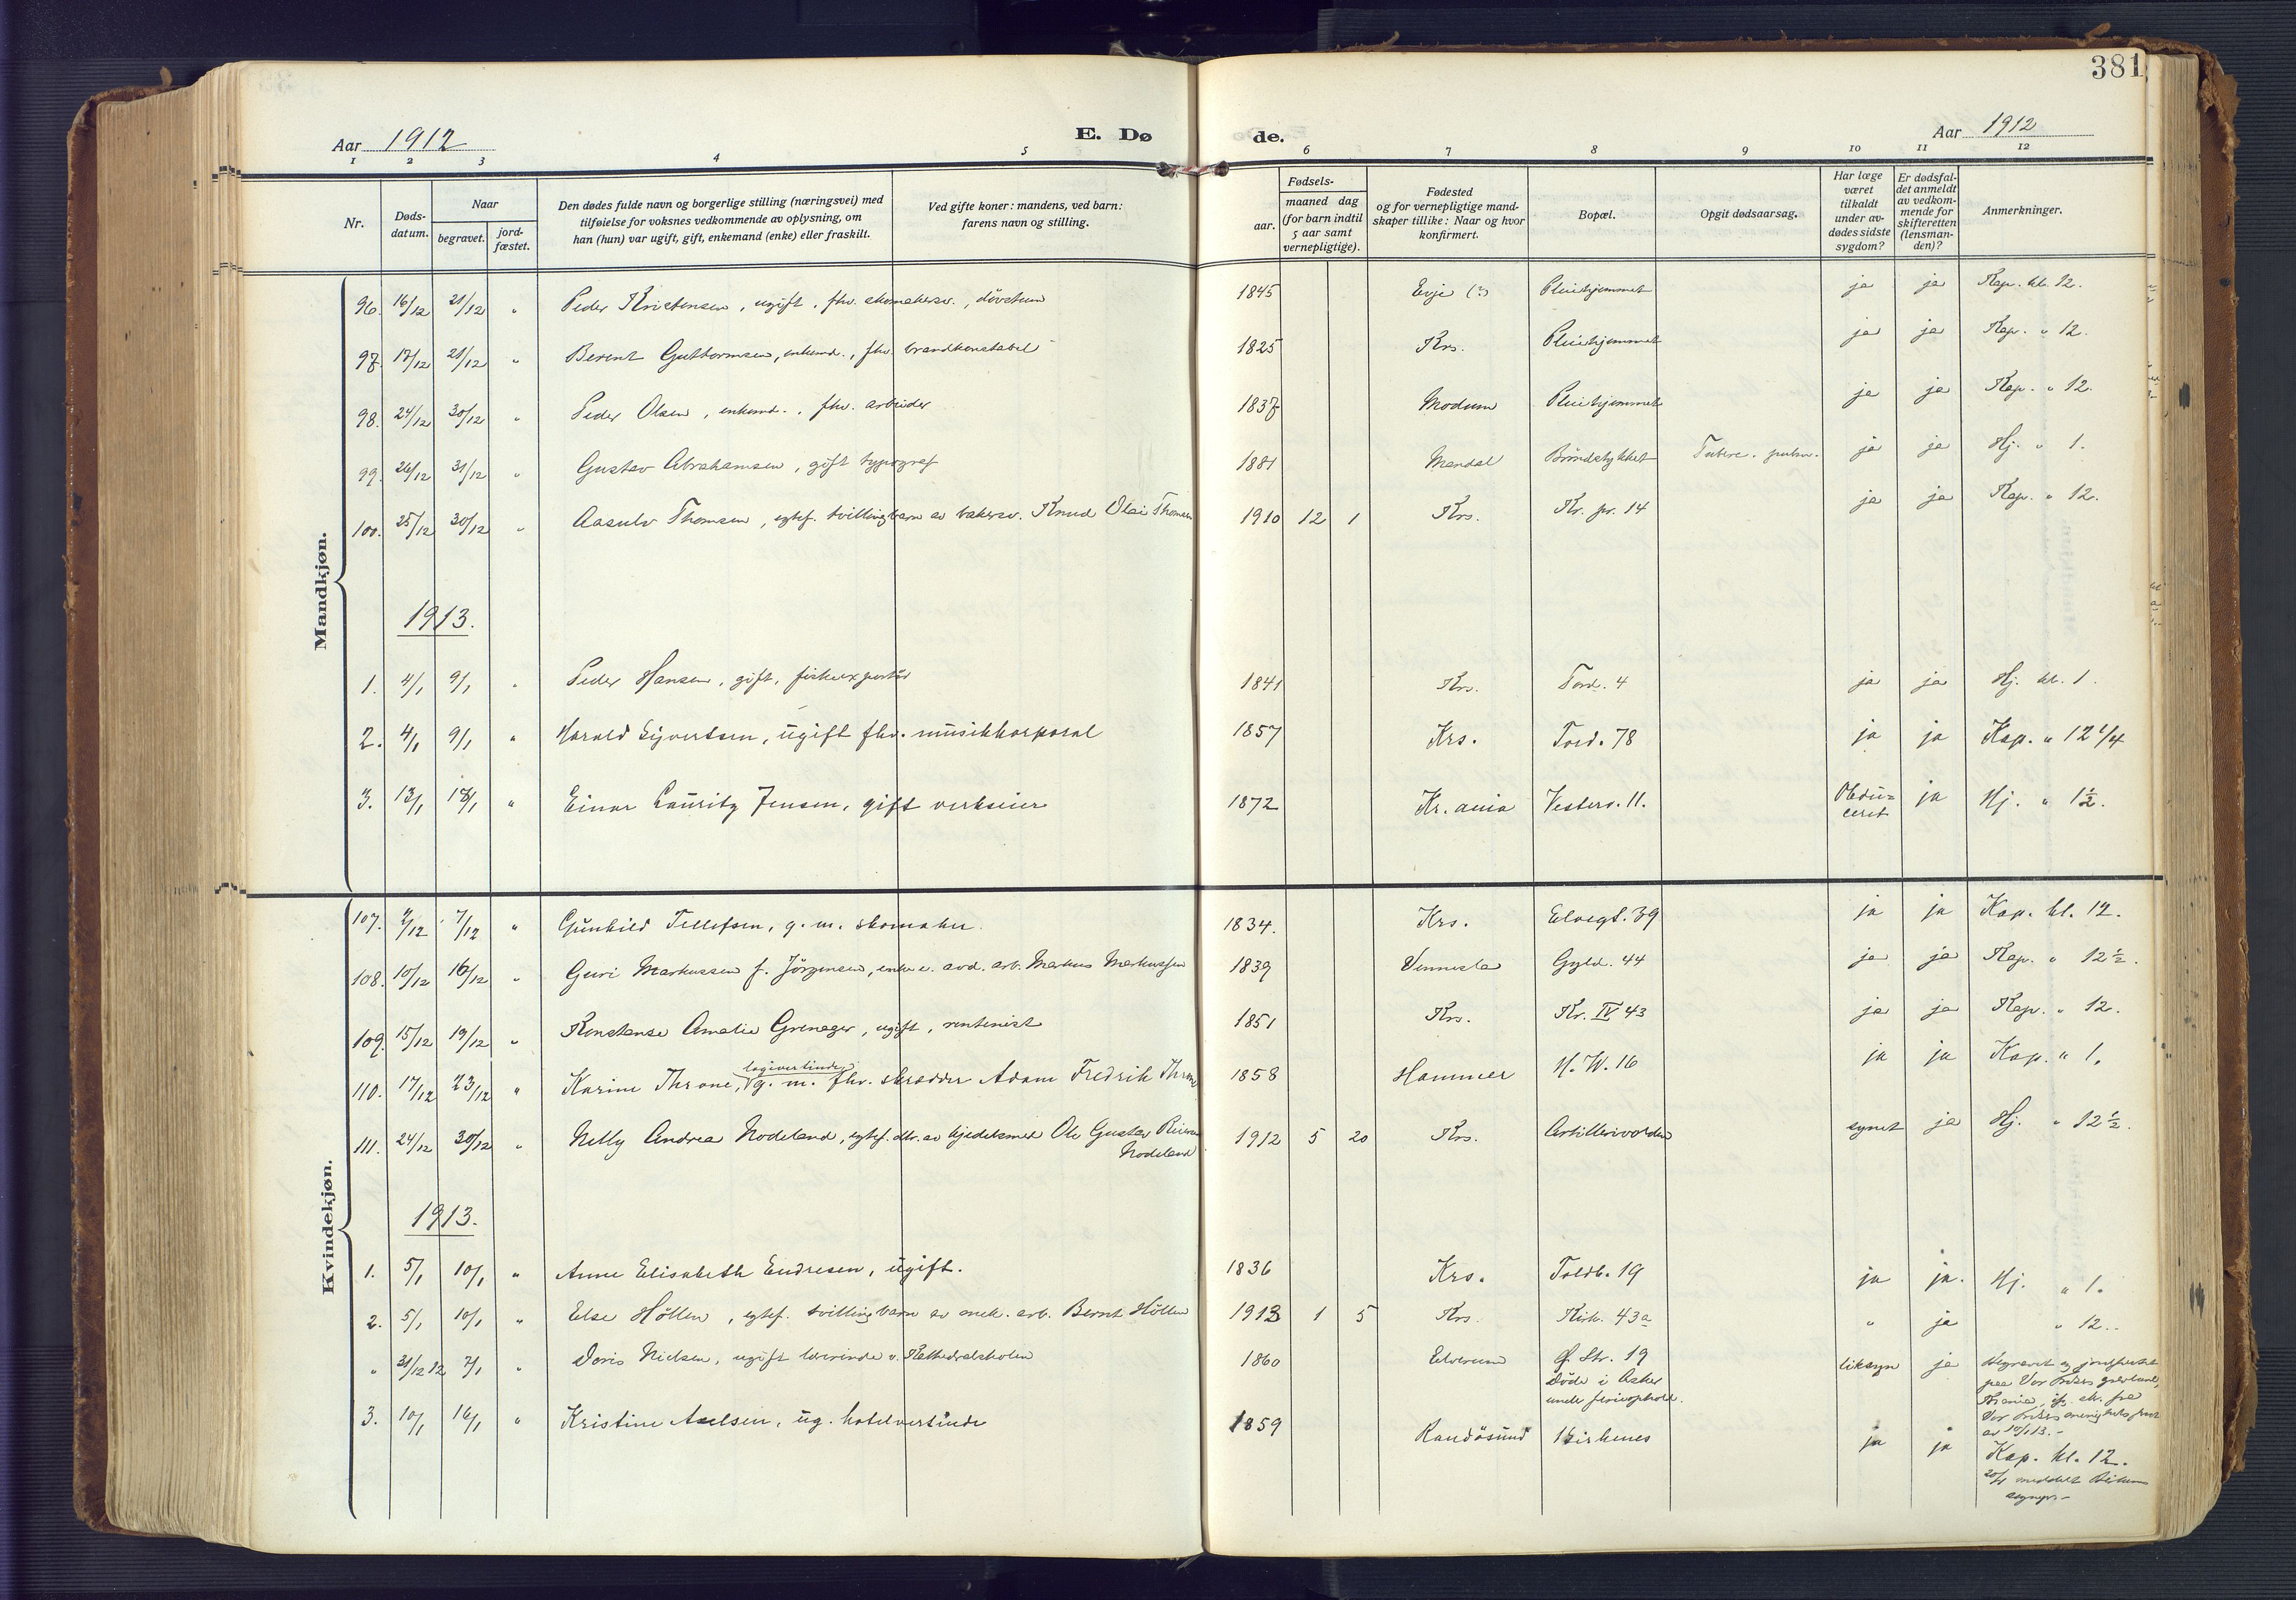 381
Aar 1912
E. Dø de.
Aar 1912
1 2 3 4 5 6 7 8 9 10 11 12
Nr.
Døds-
datum.
Naar
begravet.
jord-
fæstet.
Den dødes fulde navn og borgerlige stilling (næringsvei) med
tilføielse for voksnes vedkommende av oplysning, om
han (hun) var ugift, gift, enkemand (enke) eller fraskilt.
Ved gifte koner: mandens, ved barn:
farens navn og stilling.
Fødsels-
aar.
maaned dag
(for barn indtil
5 aar samt
vernepligtige).
Fødested
og for vernepligtige mand-
skaper tillike: Naar og hvor
konfirmert.
Bopæl.
Opgit dødsaarsag.
Har læge
været
tilkaldt
under av-
dødes sidste
sygdom?
Er dødsfal-
det anmeldt
av vedkom-
mende for
skifteretten
(lensman-
den)?
Anmerkninger.
Mandkjøn.
96. 16/12 21/12 " Peder Kristensen, ugift, fhv. skomakersv., døvstum 1845 Evje (?) Pleiehjemmet ja ja Kap. kl. 12.
97. 17/12 21/12 " Berent Guttormsen, enkemd., fhv. brandkonstabel 1825 Krs. Pleiehjemmet ja ja Kap. " 12.
98. 24/12 30/12 " Peder Olsen, enkemd., fhv. arbeider 1837 Modum Pleiehjemmet ja ja Kap. " 12.
99. 26/12 31/12 " Gustav Abrahamsen, gift typograf 1881 Mandal Brøndstykket Tuberc. pulm. ja ja Hj. " 1.
100. 25/12 30/12 " Aasulv Thomsen, egtef. tvillingbarn av bakersv. Knud Olai Thomsen 1910 12 1 Krs. Kr. pr. 14 ja ja Kap. " 12.
1913.
1. 4/1 9/1 " Peder Hansen, gift, fiskeexportør 1841 Krs. Tord. 4 ja ja Hj. kl. 1.
2. 4/1 9/1 " Harald Syvertsen, ugift fhv. musikkorporal 1857 Krs. Tord. 78 ja ja Kap. " 12 1/4
3. 13/1 18/1 " Einar Lauritz Jensen, gift verkseier 1872 Kr.ania Vesterv. 11. Obdu=
ceret ja Hj. " 1 1/2.
Kvindekjøn.
107. 2/12 7/12 " Gunhild Tellefsen, g. m. skomaker. 1834. Krs. Elvegt. 39 ja ja Kap. kl. 12.
108. 10/12 16/12 " Guri Markussen f. Jörgensen, enke e. avd. arb. Markus Markussen 1839 Vennesla Gyld. 44 ja ja Kap. " 12 1/2.
109. 15/12 19/12 " Konstanse Amalie Grenager, ugift, rentenist 1851 Krs. Kr. IV 43 ja ja Kap. " 12.
logivertinde
110. 17/12 23/12 " Karine Throne, g. m. fhv. skrædder Adam Fredrik Throne 1858 Hammer H. W. 16 ja ja Kap. " 1.
111. 24/12 30/12 " Nelly Andrea Nodeland, egtef. dtr. av kjedelsmed Ole Gustav Reiersen
Nodeland 1912 5 20 Krs. Artillerivolden synet ja Hj. " 12 1/2.
1913.
1. 5/1 10/1 " Anne Elisabeth Endresen, ugift. 1836 Krs. Toldb. 19 ja ja. Hj. " 1.
2. 5/1 10/1 " Else Höllen, egtef. tvillingbarn av mek. arb. Bernt Höllen 1913 1 5 Krs. Kirk. 43a " ja " 12.
" 31/12 12 7/1 " Doris Nielsen, ugift lærerinde v. Kathedralskolen 1860 Elverum Ø. Str. 19
Döde i Asker
under ferieophold. liksyn ja Begravet og jordfæstet
paa Vor Frelsers gravlund,
Kr.ania, ifg. sk. fra
Vor Frelsers menighets prest
av 10/1 13.-
3. 10/1 16/1 " Kristine Axelsen, ug. hotelvertinde 1859 Randösund Kirkenes ja ja Kap. kl. 12.
20/1 meddelt